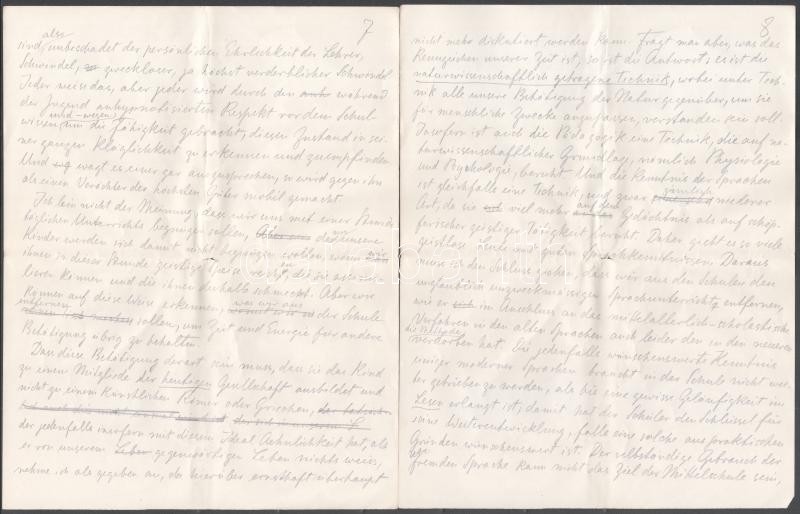 7
also
sind, unbeschadet der persönlichen Ehrlichkeit der Lehrer,
Schwindel, zweckloser, ja höchst verderblicher Schwindel.
Jeder weiss das, aber jeder wird durch den während
der Jugend anhypnotisierten Respekt vor dem Schul-
und -wegen
wissen um die Fähigkeit gebracht, diesen Zustand in sei-
ner ganzen Kläglichkeit zu erkennen und zu empfinden
Und wagt es einer gar auszusprechen, so wird gegen ihn
als einen Verächter der höchsten Güter mobil gemacht.
Ich bin nicht der Meinung, dass wir uns mit einer Stunde
täglichen Unterrichts begnügen sollen, denn unsere
Kinder werden sich damit nicht begnügen wollen, wenn wir
ihnen in dieser Stunde geistige Speise reichen, die sie assimi-
lieren können und die ihnen deshalb schmeckt. Aber wir
können auf diese Weise erkennen, was wir aus der Schule
entfernen
sollen, um Zeit und Energie für andere
Betätigung übrig zu behalten.
Dass diese Betätigung derart sein muss, dass sie das Kind
zu einem Mitgliede der heutigen Gesellschaft ausbildet und
nicht zu einem künstlichen Römer oder Griechen,
der jedenfalls insofern mit diesem Ideal Ähnlichkeit hat, als
er von unserem gegenwärtigen Leben nichts weiss,
nehme ich als gegeben an, da hierüber ernsthaft überhaupt
8
nicht mehr diskutiert werden kann. Fragt man aber, was das
Kennzeichen unserer Zeit ist, so ist die Antwort: es ist die
naturwissenschaftlich getragene Technik, wobei unter Tech-
nik alle unsere Betätigung der Natur gegenüber, um sie
für menschliche Zwecke anzupassen, verstanden sein soll.
Insofern ist auch die Pädagogik eine Technik, die auf na-
turwissenschaftlicher Grundlage, nämlich Physiologie
und Psychologie, beruht. Und die Kenntnis der Sprachen
ist gleichfalls eine Technik, und zwar ziemlich niederer
Art, da sie viel mehr auf dem Gedächtnis als auf schöp-
ferischer geistiger Tätigkeit beruht. Daher giebt es so viele
geistlose Leute mit guten Sprachkenntnissen. Daraus
muss ich den Schluss ziehen, dass wir aus den Schulen den
unzweckmässigen Sprachunterricht entfernen,
wie er im Anschluss an das mittelalterlich-scholastische
Verfahren in den alten Sprachen auch leider den in den neueren
die Methode
verdorben hat. Die jedenfalls wünschenswerte Kenntnis
einiger moderner Sprachen braucht in der Schule nicht wei-
ter getrieben zu werden, als bis eine gewisse Geläufigkeit im
Lesen erlangt ist, damit hat der Schüler den Schlüssel für
ihre Weiterentwicklung, falls eine solche aus praktischen
Gründen wünschenswert ist. Der selbständige Gebrauch der
fremden Sprache kann nicht das Ziel der Mittelschule sein,